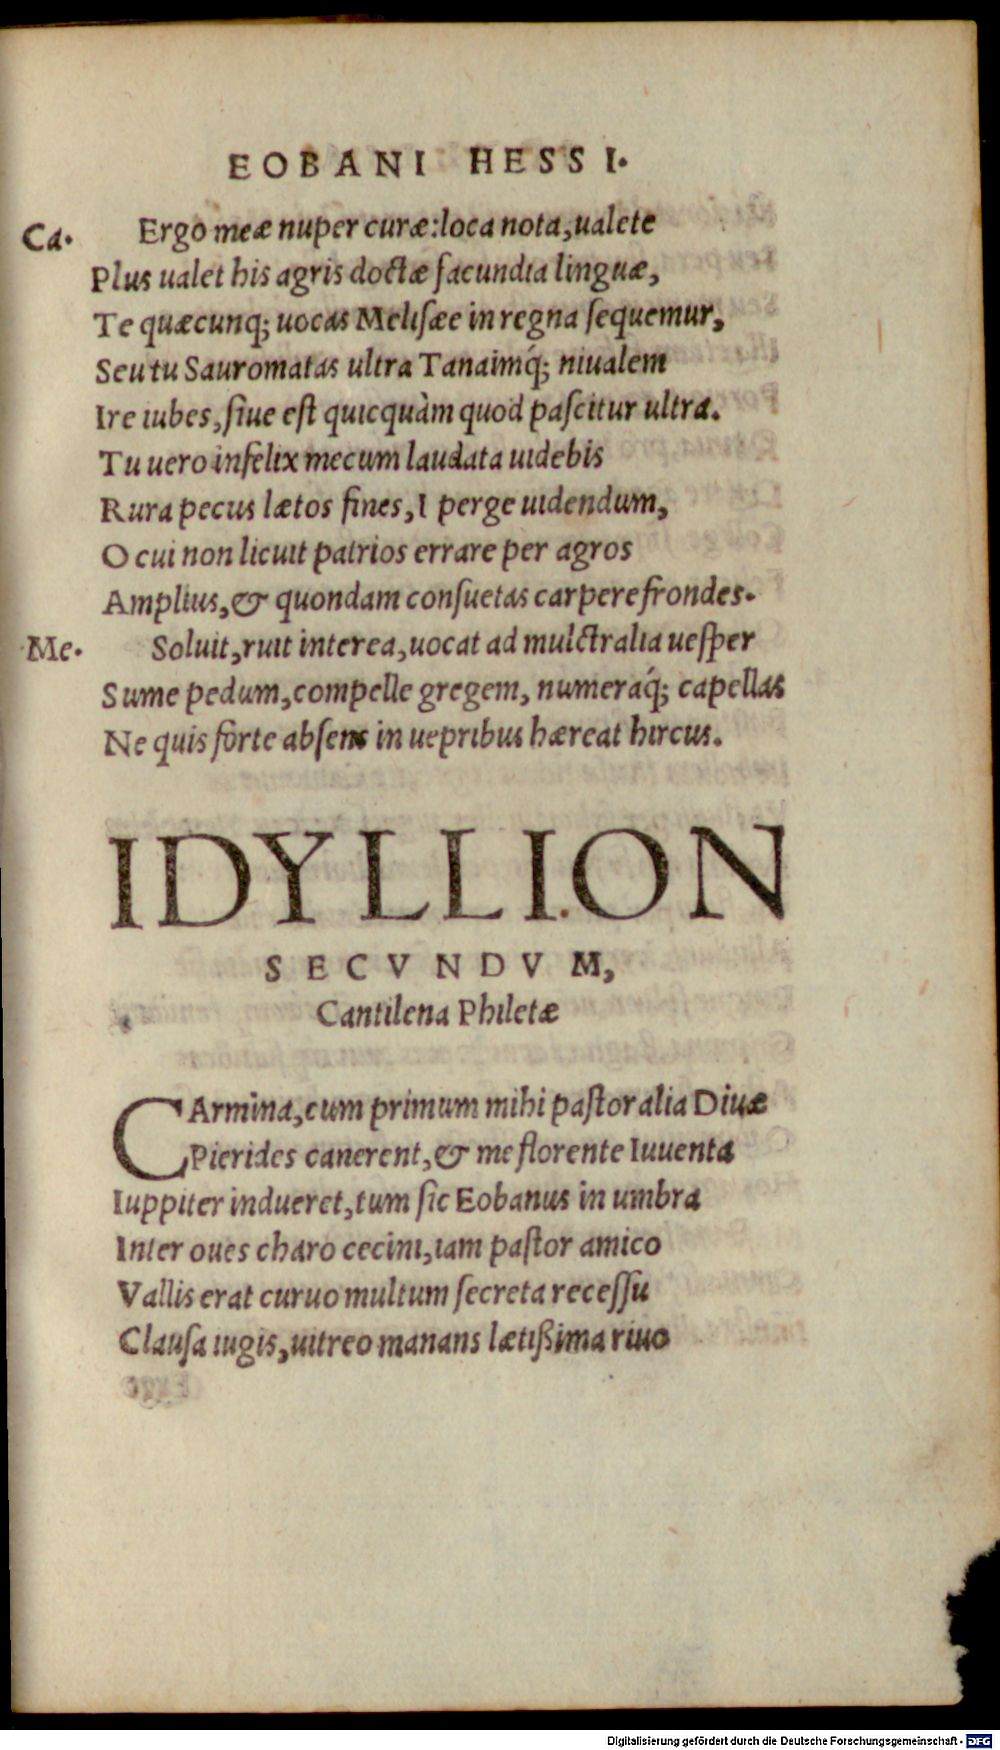 EOBANI HESSI.
Ca. Ergo meæ nuper curæ:loca nota,ualete
Plus ualet his agris doctæ facundia linguæ,
Te quæcunq; uocas Melisæe in regna sequemur,
Seu tu Sauromatas ultra Tanaimq́; niualem
Ire iubes, siue est quicquàm quod pascitur ultra.
Tu uero infelix mecum laudata uidebis
Rura pecus lætos fines, I perge uidendum,
O cui non licuit patrios errare per agros
Amplius, & quondam consuetas carpere frondes.
Me. Soluit, ruit interea, uocat ad mulctralia uesper
Sume pedum, compelle gregem, numeraq́; capellas
Ne quis forte absens in uepribus hæreat hircus.
IDYLLION
SECVNDVM,
Cantilena Philetæ
CArmina, cum primum mihi pastoralia Diuæ
Pierides canerent, & me florente Iuuenta
Iuppiter indueret, tum sic Eobanus in umbra
Inter oues charo cecini, iam pastor amico
Vallis erat curuo multum secreta recessu
Clausa iugis, uitreo manans lætißima riuo
Digitalisierung gefördert durch die Deutsche Forschungsgemeinschaft - DFG